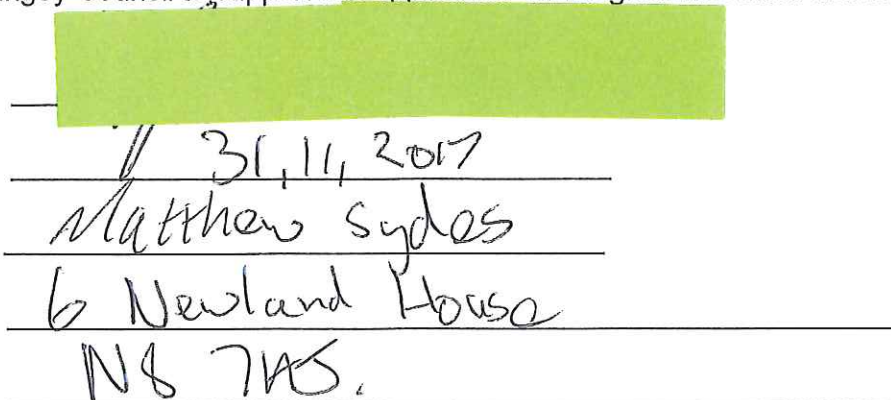 31, 11, 2017
Matthew Sydes
6 Newland House
N8 7AS.